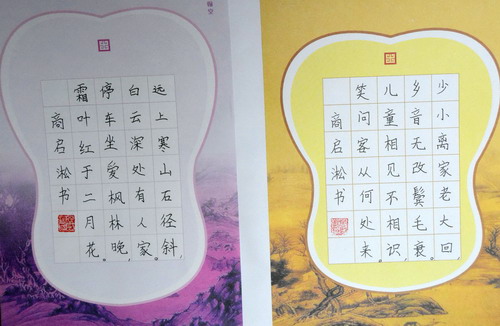 远上寒山石径斜
白云深处有人家
停车坐爱枫林晚
霜叶红于二月花
商启淞书
少小离家老大回
乡音无改鬓毛衰
儿童相见不相识
笑问客从何处来
商启淞书